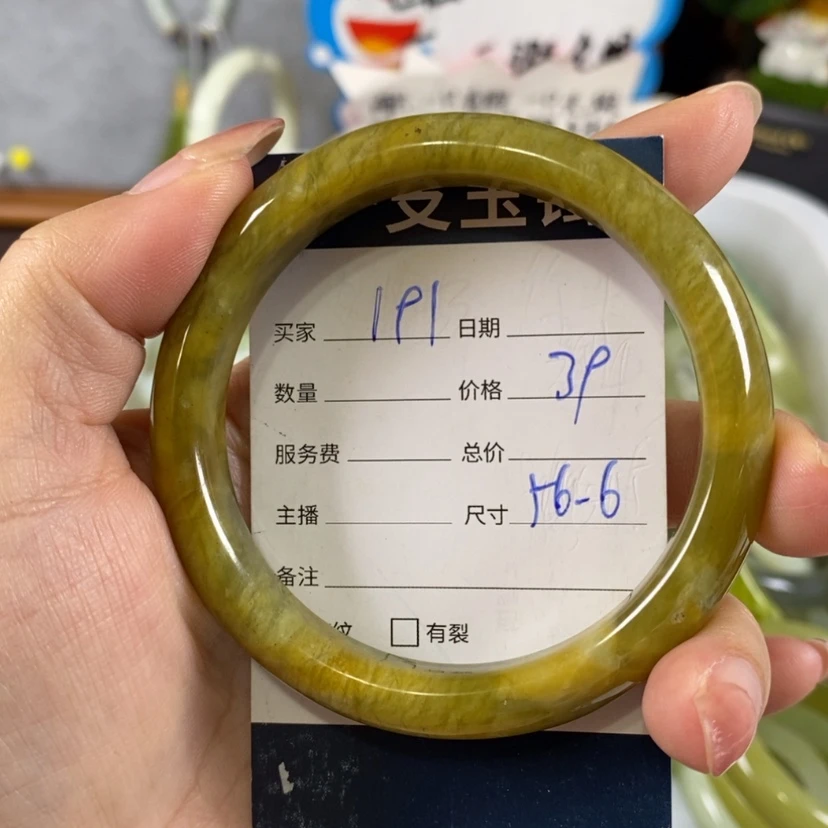 买家 191 日期
数量 价格 39
服务费 总价
主播 尺寸 56-6
备注
纹 有裂